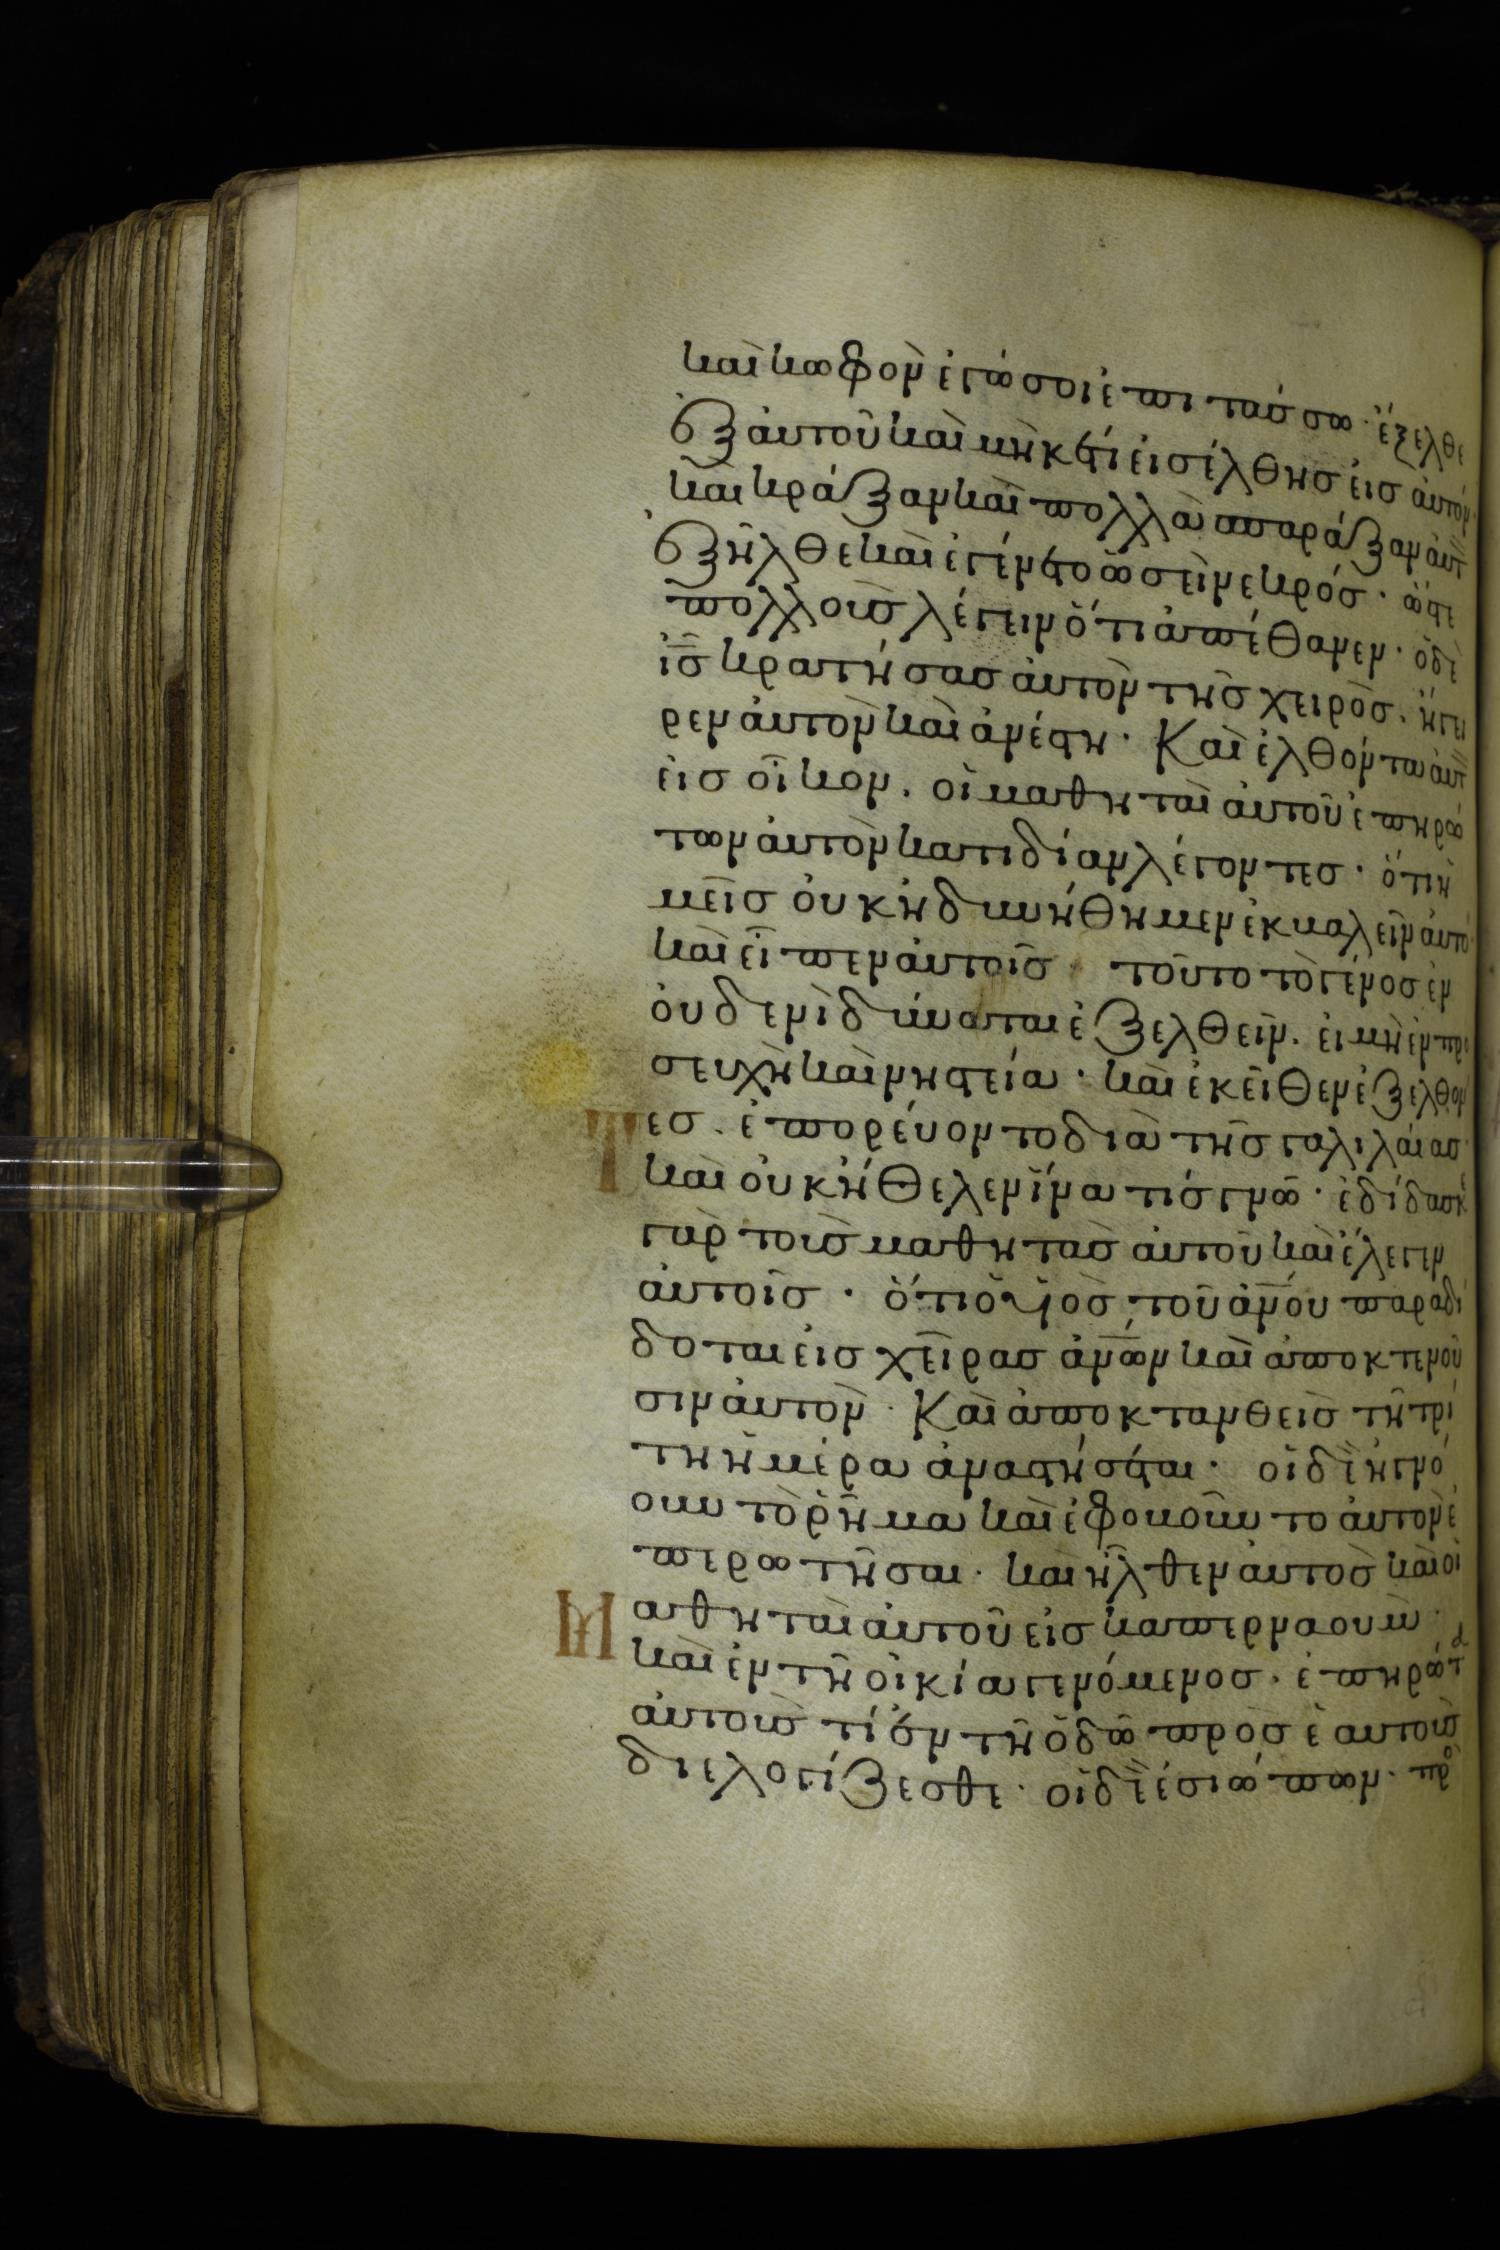 καὶ κωφὸν ἐγώ σοι ἐπιτάσσω· ἔξελθε
ἐξ αὐτοῦ καὶ μηκέτι εἰσέλθῃσ εἰσ αὐτόν·
καὶ κράξαν καὶ πολλὰ σπαράξαν αὐτ
ἐξῆλθε καὶ ἐγένετο ὡσεὶ νεκρόσ· ὥστε
πολλοὺσ λέγειν ὅτι ἀπέθανεν· ὁ δὲ
ισ κρατήσασ αὐτὸν τῆσ χειρὸσ· ἤγει
ρεν αὐτὸν καὶ ἀνέστη· Καὶ ἐλθόντα αὐτ
εἰσ οἶκον. οἱ μαθηταὶ αὐτοῦ ἐπηρώ
των αὐτὸν κατιδίαν λέγοντεσ· ὅτι ἡ
μεῖσ οὐκ ἠδυνήθημεν ἐκβαλεῖν αὐτό
καὶ εἶπεν αὐτοῖσ· τοῦτο τὸ γένοσ ἐν
οὐδενὶ δύναται ἐξελθεῖν. εἰ μὴ ἐν προ
σευχῆ καὶ νηστεία· καὶ ἐκεῖθεν ἐξελθόν
Τεσ. ἐπορεύοντο διὰ τῆσ γαλιλαίασ
καὶ οὐκ ἤθελεν ἵνα τίσ γνῶ· ἐδίδασκ
γὰρ τοὺσ μαθητὰσ αὐτοῦ καὶ ἔλεγεν
αὐτοῖσ· ὅτι ὁ υἱὸσ τοῦ ανου παραδί
δοται εἰσ χεῖρασ ανων καὶ ἀποκτενοῦ
σιν αὐτὸν· Καὶ ἀποκτανθεὶσ τῆ τρί
τη ἡμέρα ἀναστήσεται· οἱ δὲ ἠγνό
ουν τὸ ῥῆμα καὶ ἐφοβοῦντο αὐτὸν ἐ
περωτῆσαι· καὶ ἦλθεν αὐτὸσ καὶ οἱ
Μαθηταὶ αὐτοῦ εἰσ καπερναοὺμ·
καὶ ἐν τῆ οἰκία γενόμενοσ· ἐπηρώτ
αὐτοὺσ τί ἐν τῆ ὁδῶ πρὸσ ἑαυτοὺσ
διελογίζεσθε· οἱ δὲ ἐσιώπων· πρὸ